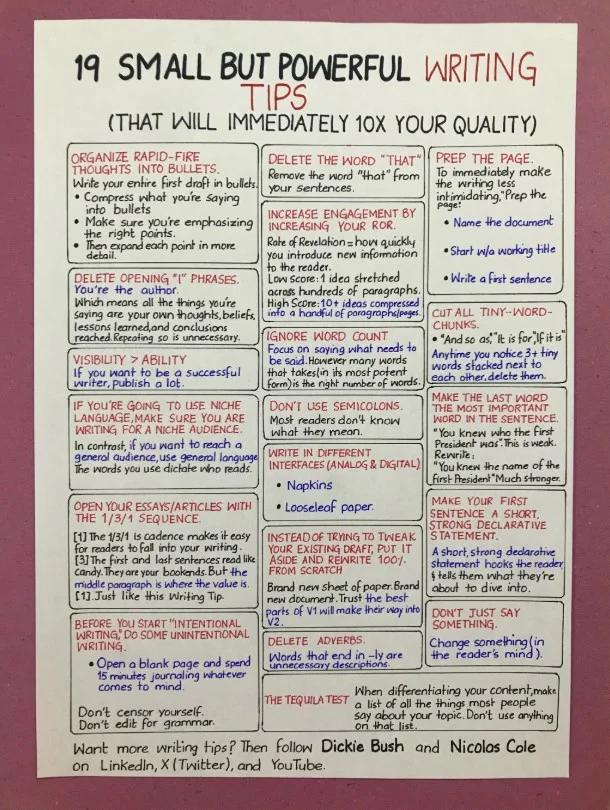 19 SMALL BUT POWERFUL WRITING
TIPS
(THAT WILL IMMEDIATELY 10X YOUR QUALITY)
ORGANIZE RAPID-FIRE
THOUGHTS INTO BULLETS.
Write your entire first draft in bullets.
• Compress what you're saying
into bullets
• Make sure you're emphasizing
the right points.
• Then expand each point in more
detail.
DELETE OPENING "I" PHRASES.
You're the author.
Which means all the things you're
saying are your own thoughts, beliefs,
lessons learned, and conclusions
reached. Repeating so is unnecessary.
VISIBILITY > ABILITY
If you want to be a successful
writer, publish a lot.
IF YOU'RE GOING TO USE NICHE
LANGUAGE, MAKE SURE YOU ARE
WRITING FOR A NICHE AUDIENCE.
In contrast, if you want to reach a
general audience, use general language
The words you use dictate who reads.
OPEN YOUR ESSAYS/ARTICLES WITH
THE 1/3/1 SEQUENCE.
[1] The 1/3/1 is cadence makes it easy
for readers to fall into your writing.
[3] The first and last sentences read like
Candy. They are your bookends. But the
middle paragraph is where the value is.
[1]. Just like this Writing Tip.
BEFORE YOU START "INTENTIONAL
WRITING," DO SOME UNINTENTIONAL
WRITING.
• Open a blank page and spend
15 minutes journaling whatever
comes to mind.
Don't censor yourself.
Don't edit for grammar.
DELETE THE WORD "THAT"
Remove the word "that" from
your sentences.
INCREASE ENGAGEMENT BY
INCREASING YOUR ROR.
Rate of Revelation = how quickly
you introduce new information
to the reader.
Low Score: 1 idea stretched
across hundreds of paragraphs.
High Score: 10+ ideas compressed
into a handful of paragraphs/pages.
IGNORE WORD COUNT
Focus on saying what needs to
be said. However many words
that takes (in its most potent
form) is the right number of words.
DON'T USE SEMICOLONS.
Most readers don't know
what they mean.
WRITE IN DIFFERENT
INTERFACES (ANALOG & DIGITAL)
• Napkins
• Looseleaf paper.
INSTEAD OF TRYING TO TWEAK
YOUR EXISTING DRAFT, PUT IT
ASIDE AND REWRITE 100%.
FROM SCRATCH
Brand new sheet of paper. Brand
new document. Trust the best
parts of V1 will make their way into
V2.
DELETE ADVERBS.
Words that end in -ly are
unnecessary descriptions.
PREP THE PAGE.
To immediately make
the writing less
intimidating, "Prep the
page."
• Name the document
• Start w/a working title
• Write a first sentence
CUT ALL TINY-WORD-
CHUNKS.
• "And so as," "It is for," "If it is"
Anytime you notice 3+ tiny
words stacked next to
each other, delete them.
MAKE THE LAST WORD
THE MOST IMPORTANT
WORD IN THE SENTENCE.
"You knew who the first
President was". This is weak.
Rewrite:
"You knew the name of the
first President" Much stronger.
MAKE YOUR FIRST
SENTENCE A SHORT,
STRONG DECLARATIVE
STATEMENT.
A short, strong declarative
statement hooks the reader
& tells them what they're
about to dive into.
DON'T JUST SAY
SOMETHING.
Change something (in
the reader's mind).
THE TEQUILA TEST
When differentiating your content, make
a list of all the things most people
say about your topic. Don't use anything
on that list.
Want more writing tips? Then follow Dickie Bush and Nicolas Cole
on LinkedIn, X (Twitter), and YouTube.